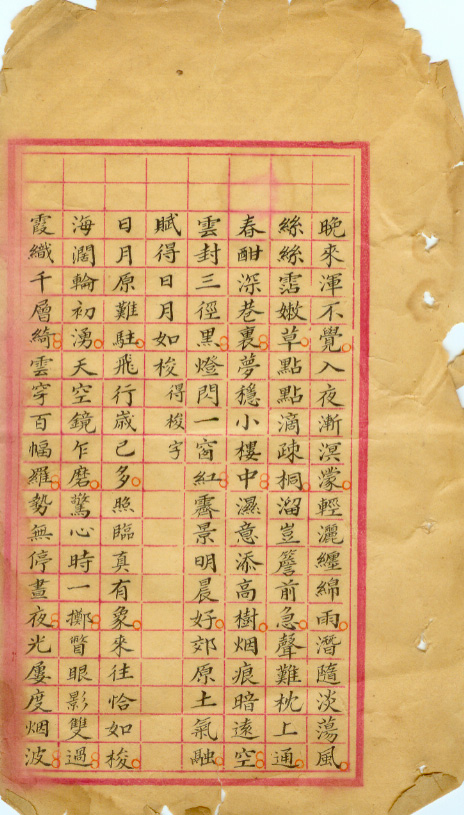 晚來渾不覺入夜漸溟濛輕灑纏綿雨潛隨淡蕩風
絲絲霑嫩草點點滴疎桐溜豈簷前急聲難枕上通
春酣深巷裏夢穩小樓中濕意添高樹烟痕暗遠空
雲封三徑黑燈閃一窗紅霽景明晨好郊原土氣融
賦得日月如梭得梭字
日月原難駐飛行歲已多照臨真有象來往恰如梭
海濶輪初湧天空鏡乍磨驚心時一擲瞥眼影雙過
霞織千層綺雲穿百幅羅勢無停晝夜光屢度烟波